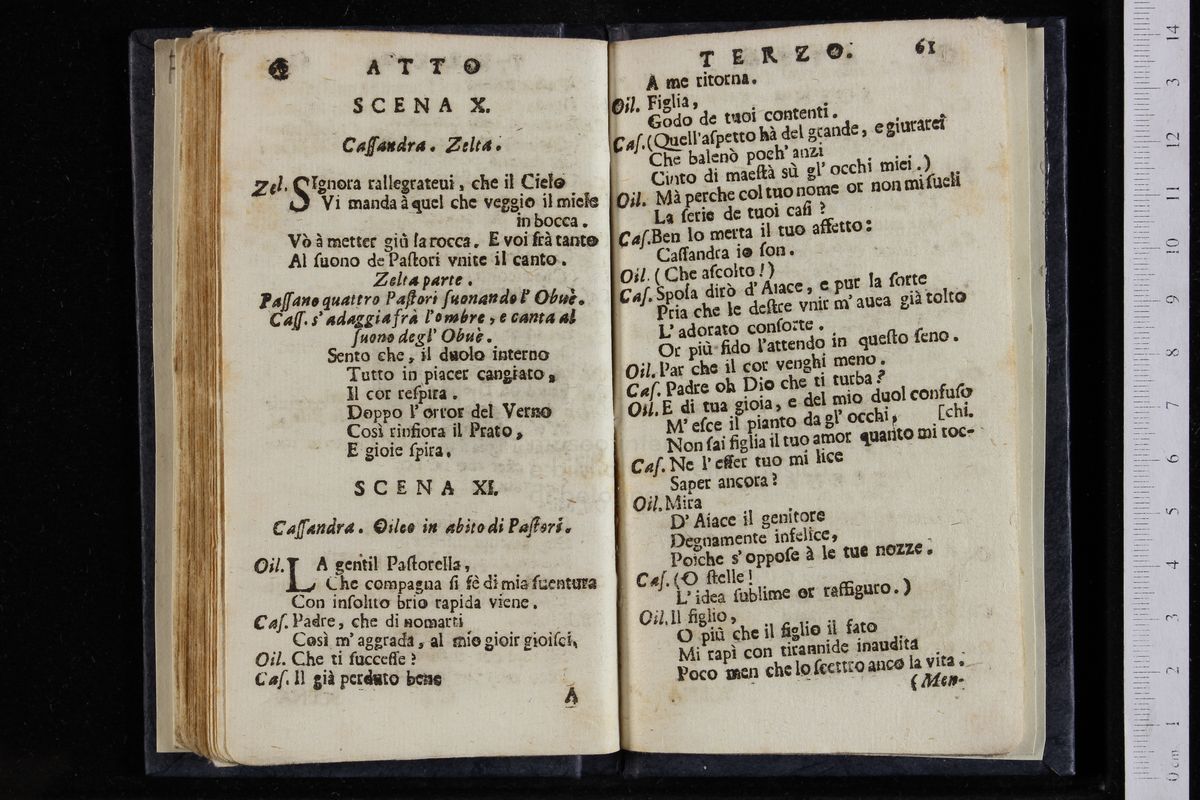 ATTO
SCENA X.
Caſſandra. Zelta.
Zel. SIgnora rallegrateui, che il Cielo
Vi manda à quel che veggio il miele
in bocca.
Vò à metter giù la rocca. E voi frà tanto
Al ſuono de Paſtori vnite il canto.
Zelta parte.
Paſſano quattro Paſtori ſuonando l' Obuè.
Caſſ. s'adaggia frà l'ombre, e canta al
ſuono degl' Obuè.
Sento che, il duolo interno
Tutto in piacer cangiato,
Il cor reſpira.
Doppo l'orror del Verno
Così rinfiora il Prato,
E gioie ſpira.
SCENA XI.
Caſſandra. Oileo in abito di Paſtori.
Oil. LA gentil Paſtorella,
Che compagna ſi fè di mia ſuentura
Con inſolito brio rapida viene.
Caſ. Padre, che di nomarti
Così m'aggrada, al mio gioir gioiſci,
Oil. Che ti ſucceſſe?
Caſ. Il già perduto bene
A
TERZO. 61
A me ritorna.
Oil. Figlia,
Godo de tuoi contenti.
Caſ. (Quell'aſpetto hà del grande, e giurarei
Che balenò poch' anzi
Cinto di maeſtà sù gl' occhi miei.)
Oil. Mà perche col tuo nome or non mi ſueli
La ſerie de tuoi caſi?
Caſ. Ben lo merta il tuo affetto:
Caſſandra io ſon.
Oil. (Che aſcolto!)
Caſ. Spoſa dirò d'Aiace, e pur la ſorte
Pria che le deſtre vnir m'auea già tolto
L'adorato conſorte.
Or più fido l'attendo in queſto ſeno.
Oil. Par che il cor venghi meno.
Caſ. Padre oh Dio che ti turba?
Oil. E di tua gioia, e del mio duol confuſo
M'eſce il pianto da gl' occhi, [chi.
Non ſai figlia il tuo amor quanto mi toc-
Caſ. Ne l'eſſer tuo mi lice
Saper ancora?
Oil. Mira
D'Aiace il genitore
Degnamente infelice,
Poiche s'oppoſe à le tue nozze.
Caſ. (O ſtelle!
L'idea ſublime or raffiguro.)
Oil. Il figlio,
O più che il figlio il fato
Mi rapì con tirannide inaudita
Poco men che lo ſcettro anco la vita.
(Men-